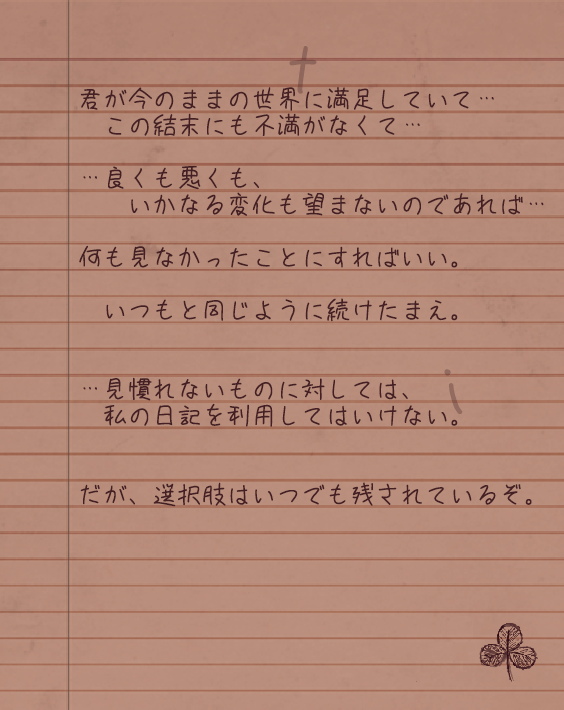 君が今のままの世界に満足していて…
この結末にも不満がなくて…
…良くも悪くも、
いかなる変化も望まないのであれば…
何も見なかったことにすればいい。
いつもと同じように続けたまえ。
…見慣れないものに対しては、
私の日記を利用してはいけない。
だが、選択肢はいつでも残されているぞ。